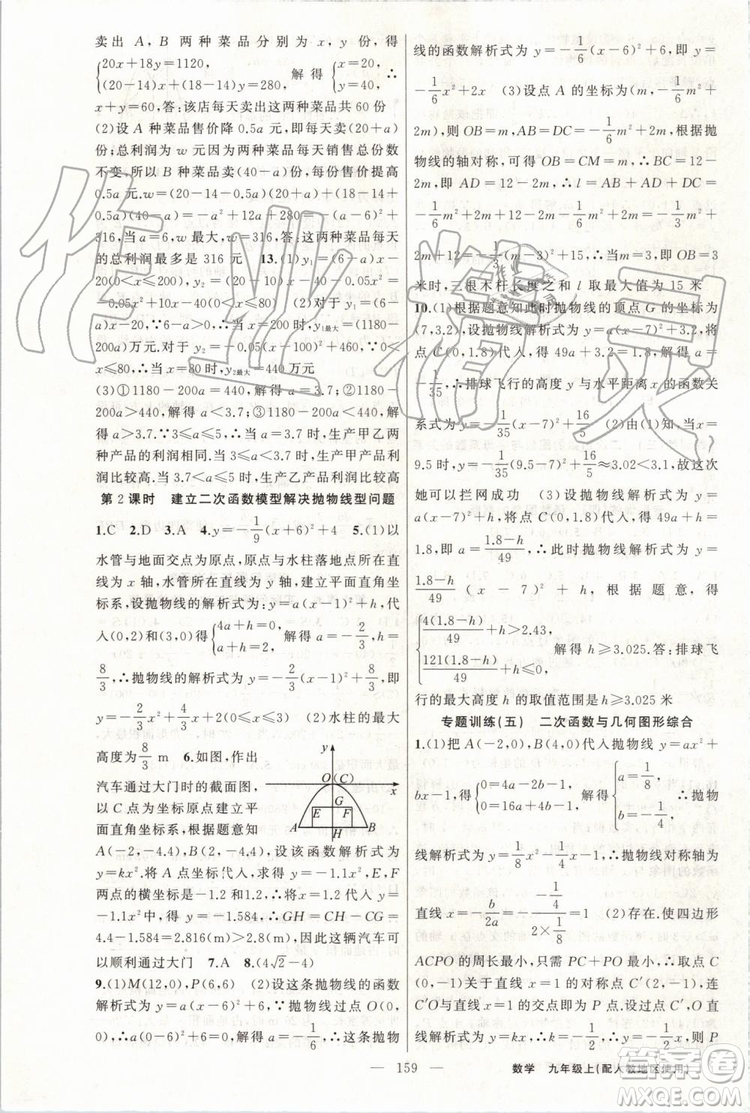 卖出A,B两种菜品分别为x,y份,根据题意得
{20x+18y=1120, (20-14)x+(18-14)y=280, 解得{x=20, y=40, ∴
x+y=60,答:该店每天卖出这两种菜品共60份
(2)设A种菜品售价降0.5a元,即每天卖(20+a)
份;总利润为w元因为两种菜品每天销售总份数
不变,所以B种菜品卖(40-a)份,每份售价提高
0.5a元.w=(20-14-0.5a)(20+a)+(18-14+
0.5a)(40-a)=-a²+12a+280=-(a-6)²+
316,当a=6,w最大,w=316,答:这两种菜品每天
的总利润最多是316元 13.(1)y₁=(3-a)x(0≤x≤
200),y₂=10x-(40+5x+0.05x²)=
-0.05x²+10x-40x-40(0≤x≤80) (2)对于y₁=
(3-a)x,∵3-a>0,∴当x=200时,y₁最大=(1180-
200a)万元.对于y₂=-0.05(x-50)²+85,∵0<
x≤80,∴x=80时,y₂最大=440万元
(3)①1180-200a=440,解得a=3.7;②1180-
200a>440,解得a<3.7;③1180-200a<440,解
得a>3.7;∵3≤a≤5,∴当a=3.7时,生产甲乙两
种产品的利润相同.当3≤a<3.7时,生产甲产品利
润比较高.当3.7<a≤5时,生产乙产品利润比较高
第2课时 建立二次函数模型解决抛物线型问题
1.C 2.D 3.A 4.y=-1/9(x+6)²+4 5.(1)以
水管与地面交点为原点,原点与水柱落地点所在直
线为x轴,水管所在直线为y轴,建立平面直角坐
标系,设抛物线的解析式为:y=a(x-1)²+h,代
入(0,2)和(3,0)得{4a+h=0, a+h=2, 解得{a=-2/3, h=
8/3,∴抛物线的解析式为y=-2/3(x-1)²+8/3,即y=
-2/3x²+4/3x+2(0≤x≤3) (2)水柱的最大
高度为8/3 m 6.如图,作出
汽车通过大门时的截面图,
以C点为坐标原点,建立平
面直角坐标系,根据题意知
A(-2,-4.4),B(2,-4.4),设该函数解析式为
y=kx²,将A代入,得y=-1.1x²,E,F
两点的横坐标是-1.2和1.2,将x=1.2代入y
=-1.1x²中,得y=-1.584,∴GH=CH-CG=
4.4-1.584=2.816(m)>2.8(m),因此这辆汽车可
以顺利通过大门 7.A 8.(4√2-4)
9.(1)M(12,0),P(6,6) (2)设这条抛物线的函数
解析式为y=a(x-6)²+6,∵抛物线过点O(0,
0),∴a(0-6)²+6=0,解得a=-1/6,∴这条抛物
y
O (C)
x
G
E F
A H B
线的函数解析式为y=-1/6(x-6)²+6,即y=
-1/6x²+2x (3)设点A的坐标为(m,-1/6m²+
2m),则OB=m,AB=DC=-1/6m²+2m,根据抛
物线的轴对称,可得OB=CM=m,∴BC=12-
2m,即AD=12-2m,∴l=AB+AD+DC=-1/6m²
+2m+12-2m-1/6m²+2m=-1/3m²+2m+12
=-1/3(m-3)²+15,∴当m=3,即OB=3
米时,三根木杆长度之和l取最大值为15米
10.(1)根据题意知此时抛物线的顶点G的坐标为
(7,3.2),设抛物线解析式为y=a(x-7)²+3.2,将
点C(0,1.8)代入,得:49a+3.2=1.8,解得:a=
-1/35,∴排球飞行的高度y与水平距离x的函数关
系式为y=-1/35(x-7)²+16/5 (2)由(1)知,当x=
9.5时,y=-1/35(9.5-7)²+16/5≈3.02<3.1,所以
她可以拦网成功 (3)设抛物线解析式为y=
a(x-7)²+h,将点C(0,1.8)代入,得:49a+h=
1.8,即a=(1.8-h)/49,∴此时抛物线解析式为y=
(1.8-h)/49(x-7)²+h,根据题意,得
{4(1.8-h)/49+h>2.43, 121(1.8-h)/49+h≤0, 解得h≥3.025,答:排球飞
行的最大高度h的取值范围是h≥3.025米
专题训练(五) 二次函数与几何图形综合
1.(1)把A(-2,0),B(4,0)代入抛物线y=ax²+
bx-1,得{0=4a-2b-1, 0=16a+4b-1, 解得{a=1/8, b=-1/4, ∴抛物
线解析式为y=1/8x²-1/4x-1,∴抛物线对称轴为
直线x=-b/2a=-(-1/4)/(2×1/8)=1 (2)存在,使四边形
ACPO的周长最小,只需PC+PO最小,∴取点C
(0,-1)关于直线x=1的对称点C′(2,-1),连
C′O与直线x=1的交点即为P点.设过点C′O直
线解析式为y=kx,∴k=-1/2,∴y=-1/2x,则P
159
数学 九年级上(配人教地区使用)
作业精灵